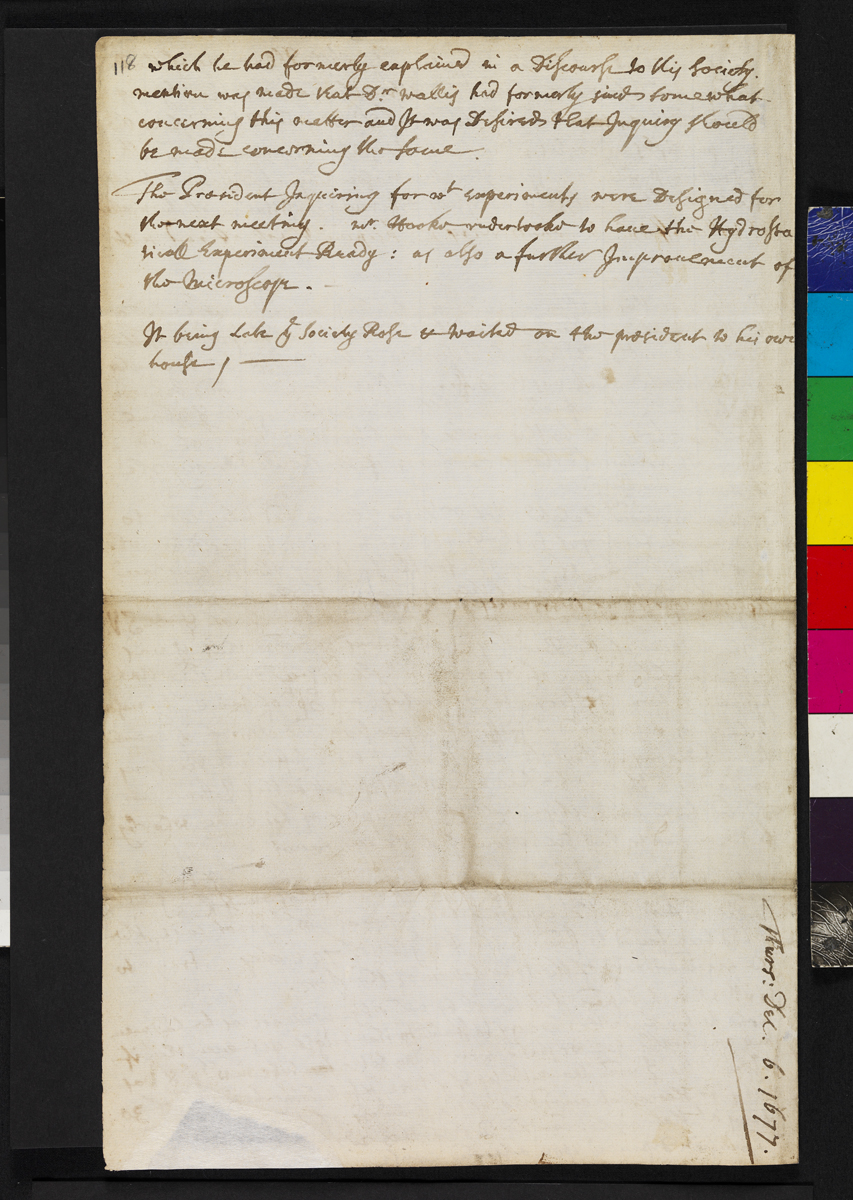 118 which he had formerly explained in a Discourse to this Society.
mention was made that Dr. wallis had formerly said somewhat
concerning this matter and It was Desired that Inquiry should
be made concerning the same.
The President Inquiring for wt experiments were Designed for
the next meeting. mr. Hooke undertooke to have the Hydrosta
ticall Experiment Ready: as also a further Improvement of
the Microscope.
It being Late ye Society Rose & waited on the president to his own
house /
Thurs: Dec. 6. 1677.